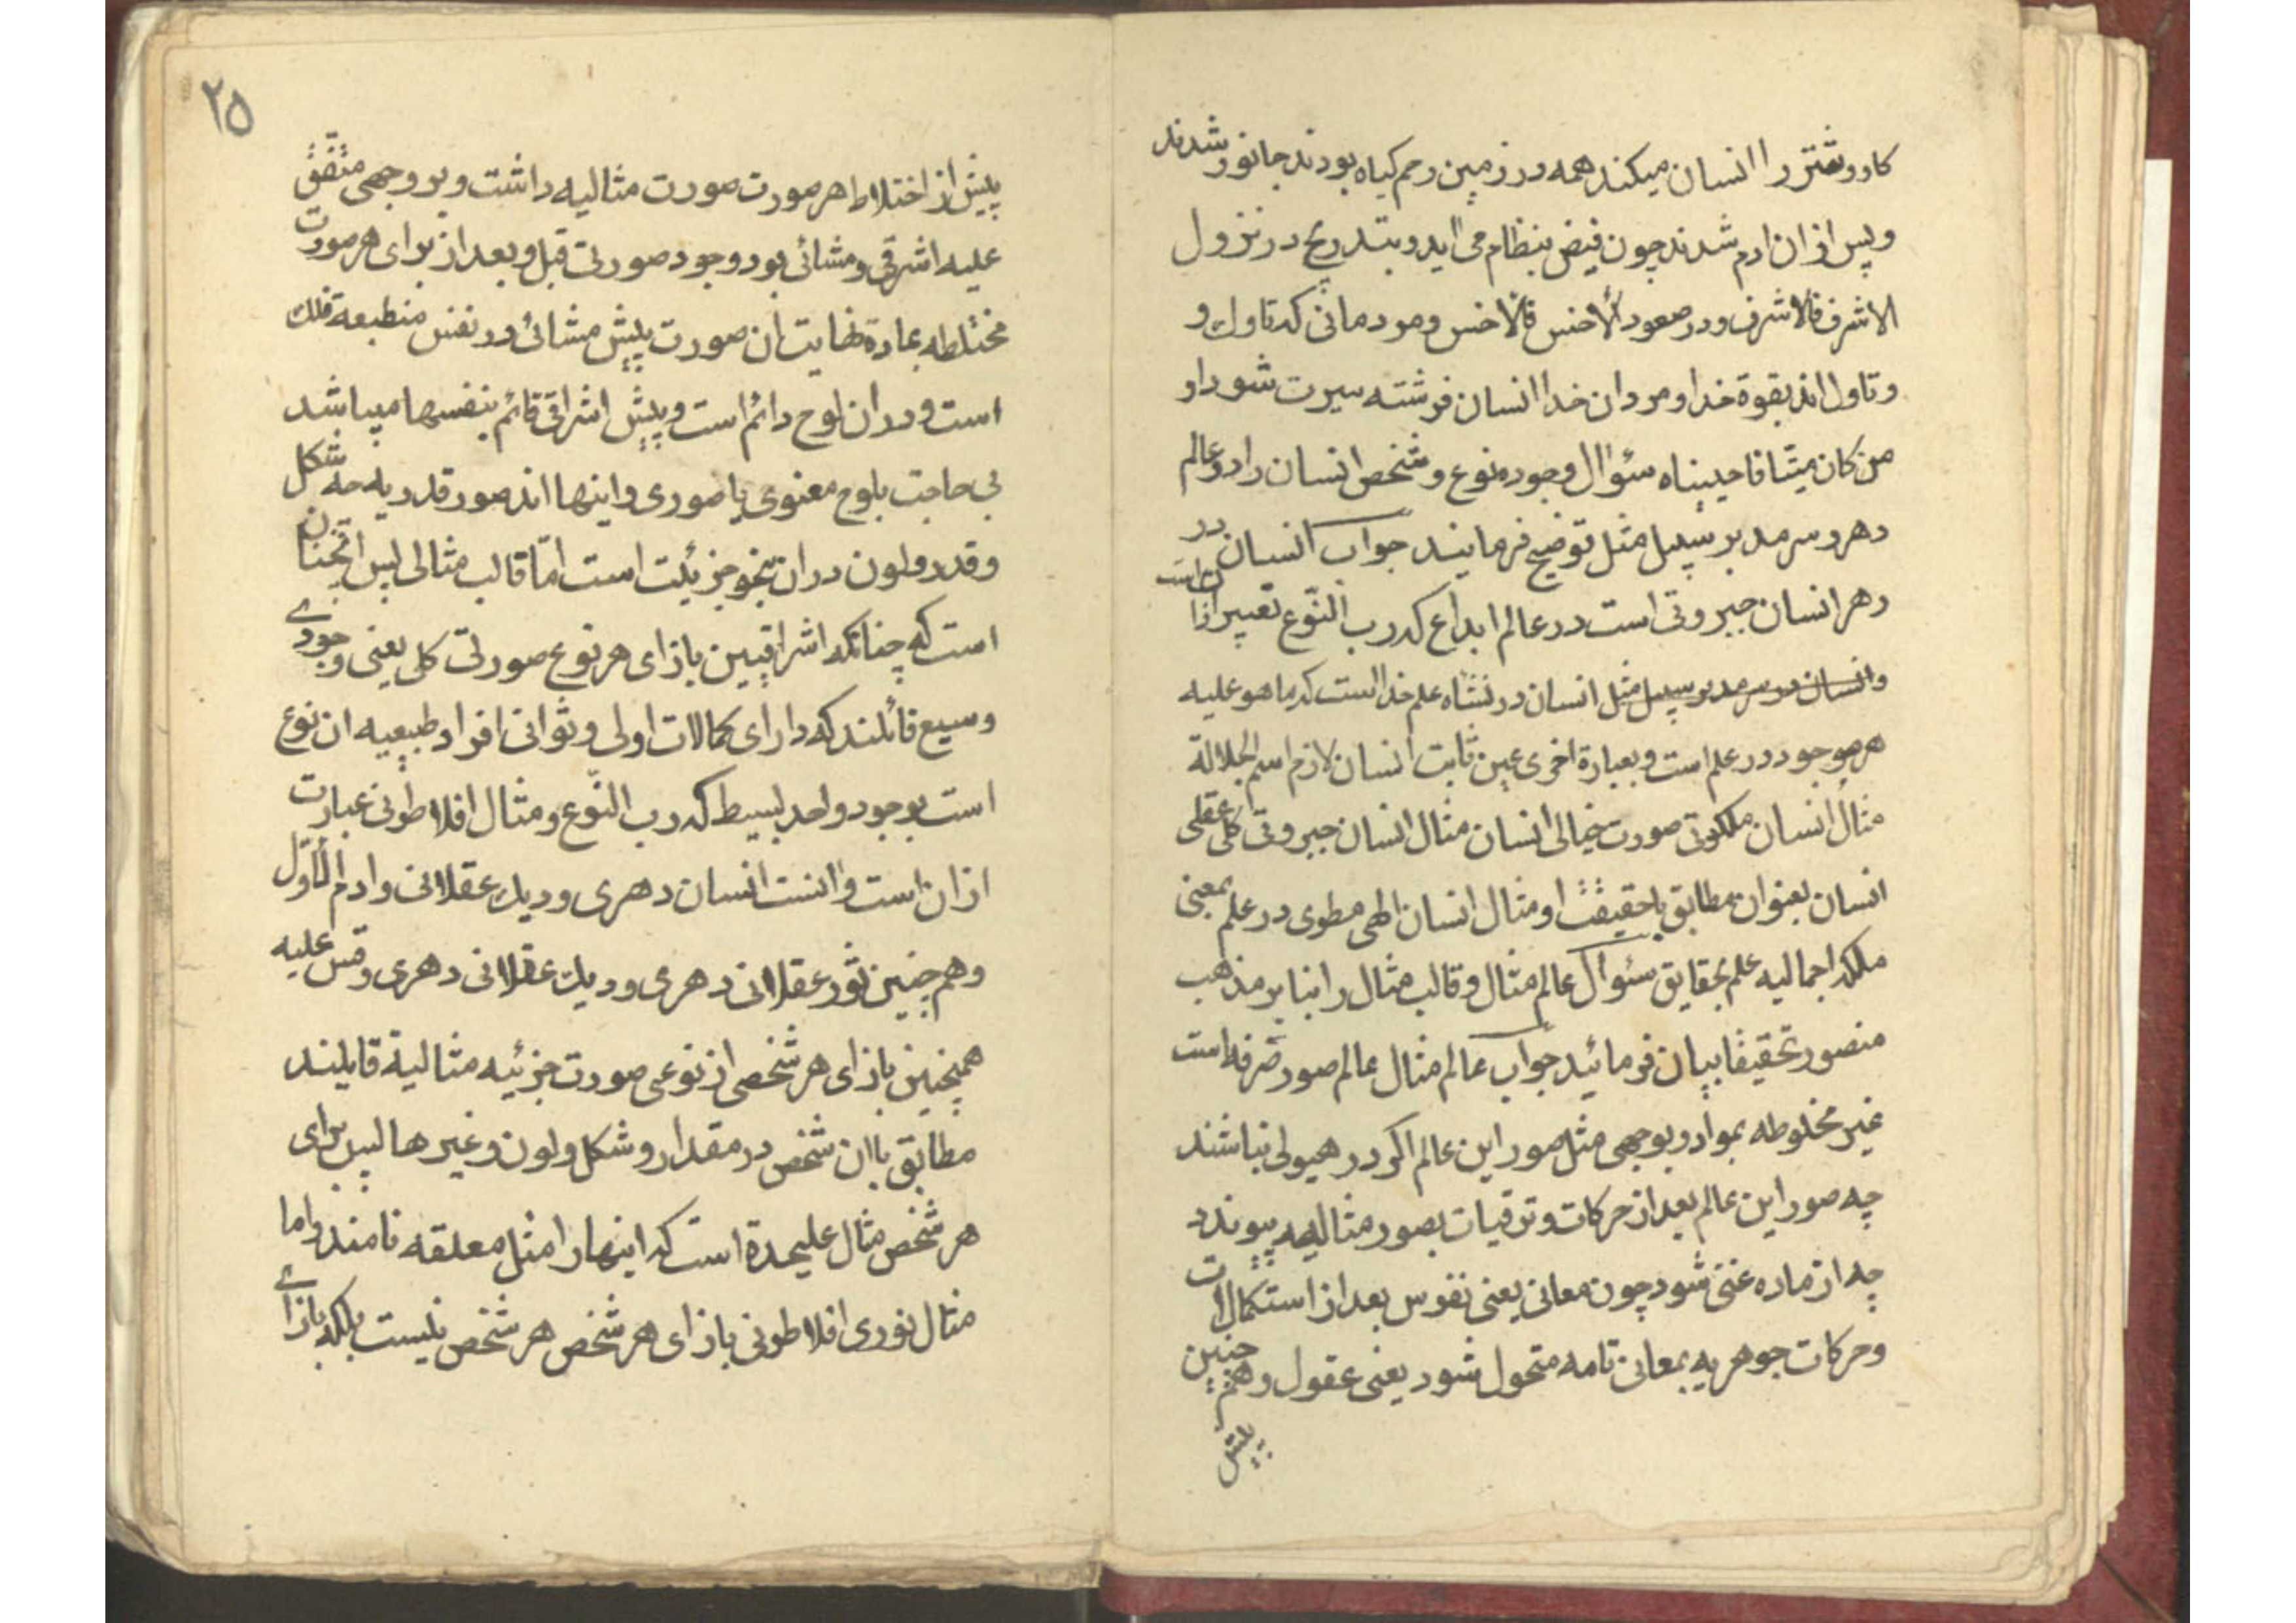 کاو و شتر را انسان میکند همه در زمین رحم کیاه بودند جانور شدند
و پس از ان ادم شدند چون فیض بنظام می اید و بتدریج در نزول
الاشرف فالاشرف و در صعود الأخس فالأخس و مردمانی که تاول و
و تاول اند بقوة خدا و مردان خدا انسان فرشته سیرت شود او
من کان میتا فاحییناه سئوال وجود نوع و شخص انسان را در عالم
دهر و سرمد بر سبیل مثل توضیح فرمایند جواب انسان در
دهر انسان جبروتی است در عالم ابداع که رب النّوع تعبیر از ان است
و انسان در سرمد بر سبیل مثل انسان در نشاه علم خداست که ما هو علیه
هر موجود در علم است و بعبارة اخری عین ثابت انسان لازم اسم الجلالة
مثال انسان ملکوتی صورت خیالی انسان مثال انسان جبروتی کلی عقلی
انسان بعنوان مطابق باحقیقت او مثال انسان الهی مطوی در علم بمعنی
ملکه اجمالیه علم بحقایق سئوال عالم مثال و قالب مثال را بنا بر مذهب
منصور تحقیقا بیان فرمائید جواب عالم مثال عالم صور صرفه است
غیر مخلوطه بمواد و بوجهی مثل صور این عالم اکر در هیولی نباشند
چه صور این عالم بعد از حرکات و ترقیات بصور مثالیه پیوندد
چه از ماده غنی شود چون معانی یعنی نفوس بعد از استکمالات
و حرکات جوهریه بمعانی تامه متحول شود یعنی عقول و هم چنین
پیش
٢٥
پیش از اختلاط هر صورت صورت مثالیه داشت و بر وجهی متفق
علیه اشرقی و مشائی بود وجود صورتی قبل و بعد از برای هر صورت
مختلطه بماده نهایت ان صورت پیش مشائی در نفس منطبعة فلک
است و در ان لوح دائم است و پیش اشراقی قائم بنفسها میباشد
بی حاجت بلوح معنوی یا صوری و اینها اند صور قدریه چه شکل
و قدر و لون در ان بنحو جزئیت است امّا قالب مثالی پس انچنان
است که چنانکه اشراقیین بازای هر نوع صورتی کلی یعنی وجودی
وسیع قائلند که دارای کمالات اولی و ثوانی افراد طبیعیه ان نوع
است بوجود واحد بسیط که رب النّوع و مثال افلاطونی عبارت
از ان است و انست انسان دهری و دیک عقلانی و ادم الاوّل
و هم چنین ثور عقلانی دهری و دیک عقلانی دهری و قس علیه
همچنین بازای هر شخصی از نوعی صورت جزئیه مثالیة قایلند
مطابق باان شخص در مقدار و شکل و لون و غیرها پس برای
هر شخص مثال علیحدة است که اینها را مثل معلقه نامند و اما
مثال نوری افلاطونی بازای هر شخص هر شخص نیست بلکه بازای